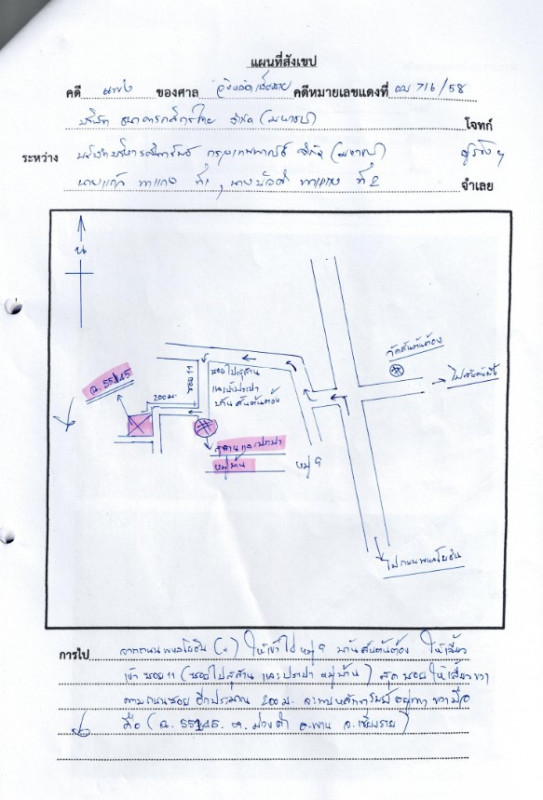 แผนที่สังเขป
คดี แพ่ง ของศาล จังหวัดเชียงราย คดีหมายเลขแดงที่ ผบ 716/58
บริษัท ธนาคารกสิกรไทย จำกัด (มหาชน) โจทก์
ระหว่าง บริษัทบริหารสินทรัพย์ กรุงเทพพาณิชย์ จำกัด (มหาชน) ผู้ร้อง
นายแก้ว ที่ 1, นางบัวคำ ที่ 2 จำเลย
น
วัดสันต้นต้อง
ฉ. 55145
200 ม.
ซอย 11
ซอยไปสุสาน
และประปา
บ้านสันต้นต้อง
สุสานและประปา
หมู่บ้าน
หมู่ 9
ไปถนนพหลโยธิน
การไป จากถนนพหลโยธิน (1) ให้เข้าไป หมู่ 9 บ้านสันต้นต้อง ให้เลี้ยว
เข้า ซอย 11 (ซอยไปสุสาน และประปา หมู่บ้าน) สุดซอยให้เลี้ยวขวา
ตามถนนซอย อีกประมาณ 200 ม. จะพบหลักทรัพย์ อยู่ทาง ขวามือ
คือ (ฉ. 55145 ต. ม่วงคำ อ. พาน จ. เชียงราย)